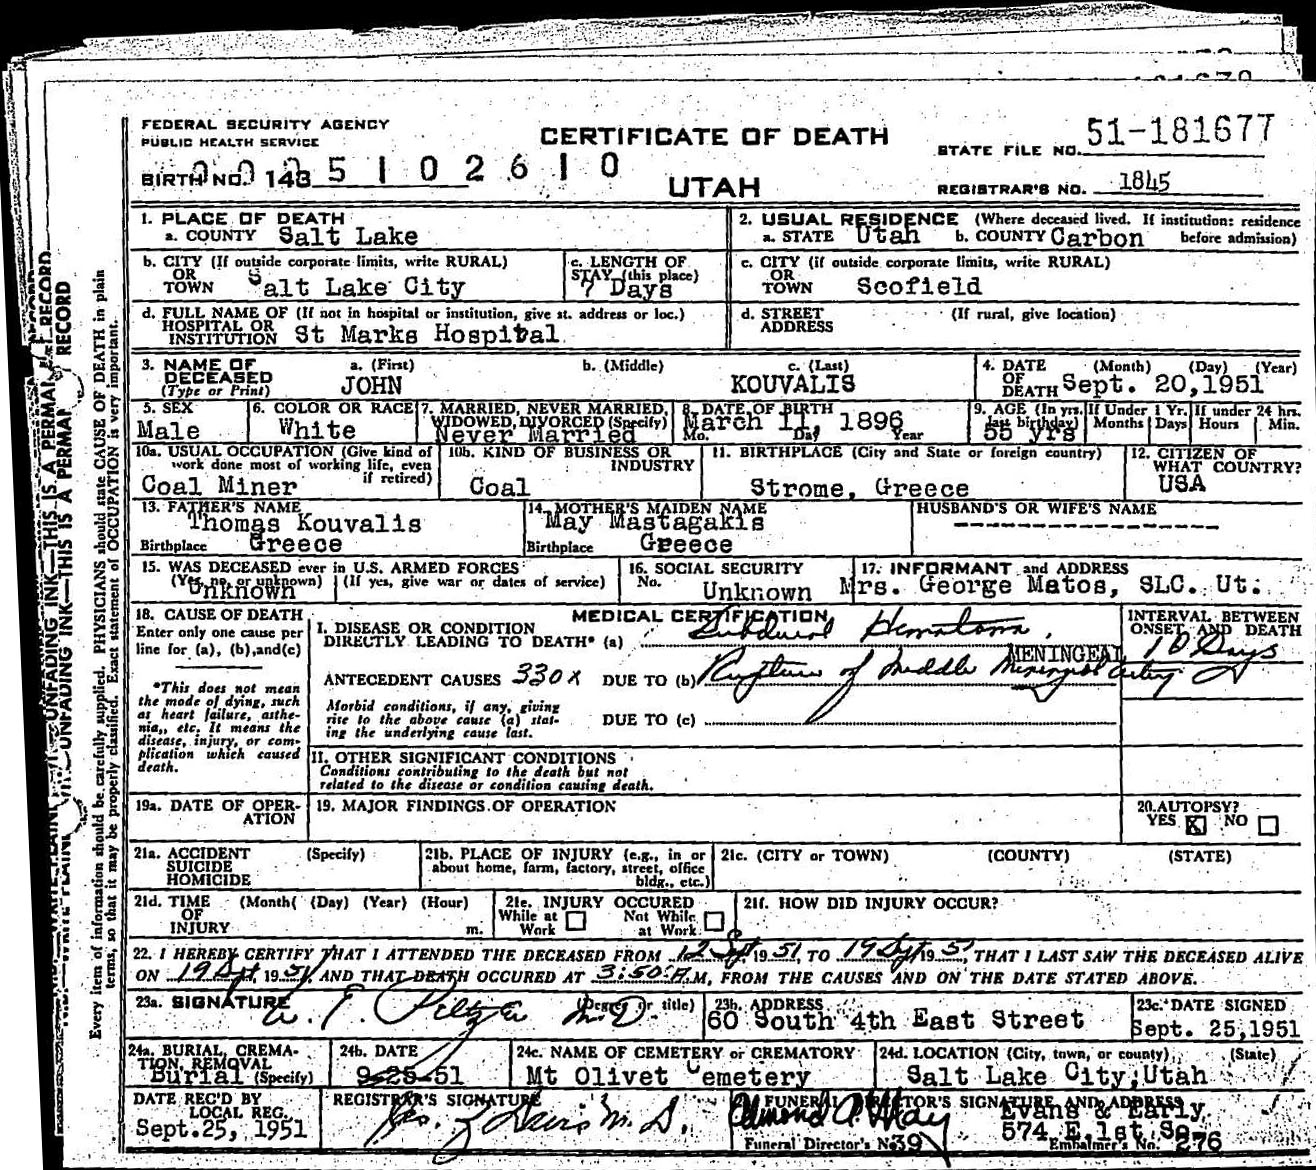 FEDERAL SECURITY AGENCY
PUBLIC HEALTH SERVICE
CERTIFICATE OF DEATH
UTAH
STATE FILE NO. 51-181677
BIRTH NO. 143 5 1 0 2 6 1 0
REGISTRAR'S NO. 1845
1. PLACE OF DEATH
a. COUNTY Salt Lake
2. USUAL RESIDENCE (Where deceased lived. If institution: residence before admission)
a. STATE Utah b. COUNTY Carbon
b. CITY (If outside corporate limits, write RURAL)
OR
TOWN Salt Lake City
c. LENGTH OF
STAY (this place)
7 Days
c. CITY (if outside corporate limits, write RURAL)
OR
TOWN Scofield
d. FULL NAME OF (If not in hospital or institution, give st. address or loc.)
HOSPITAL OR
INSTITUTION St Marks Hospital
d. STREET (If rural, give location)
ADDRESS
3. NAME OF
DECEASED
(Type or Print)
a. (First) b. (Middle) c. (Last)
JOHN KOUVALIS
4. DATE (Month) (Day) (Year)
OF
DEATH Sept. 20,1951
5. SEX
Male
6. COLOR OR RACE
White
7. MARRIED, NEVER MARRIED,
WIDOWED, DIVORCED (Specify)
Never Married
8. DATE OF BIRTH
March 11, 1896
Mo. Day Year
9. AGE (In yrs. last birthday)
55 yrs
If Under 1 Yr.
Months Days
If under 24 hrs.
Hours Min.
10a. USUAL OCCUPATION (Give kind of
work done most of working life, even
if retired)
Coal Miner
10b. KIND OF BUSINESS OR
INDUSTRY
Coal
11. BIRTHPLACE (City and State or foreign country)
Strome, Greece
12. CITIZEN OF
WHAT COUNTRY?
USA
13. FATHER'S NAME
Thomas Kouvalis
Birthplace Greece
14. MOTHER'S MAIDEN NAME
May Mastagakis
Birthplace Greece
HUSBAND'S OR WIFE'S NAME
------------------
15. WAS DECEASED ever in U.S. ARMED FORCES
(Yes, no, or unknown) (If yes, give war or dates of service)
Unknown
16. SOCIAL SECURITY
No. Unknown
17. INFORMANT and ADDRESS
Mrs. George Matos, SLC. Ut.
18. CAUSE OF DEATH
Enter only one cause per
line for (a), (b),and(c)
*This does not mean
the mode of dying, such
as heart failure, asthe-
nia,, etc. It means the
disease, injury, or com-
plication which caused
death.
MEDICAL CERTIFICATION
I. DISEASE OR CONDITION
DIRECTLY LEADING TO DEATH* (a) Subdural Hematoma.
ANTECEDENT CAUSES 330X DUE TO (b) Rupture of middle Meningeal artery
MENINGEAL
Morbid conditions, if any, giving
rise to the above cause (a) stat-
ing the underlying cause last.
DUE TO (c)
INTERVAL BETWEEN
ONSET AND DEATH
10 Days
II. OTHER SIGNIFICANT CONDITIONS
Conditions contributing to the death but not
related to the disease or condition causing death.
19a. DATE OF OPER-
ATION
19. MAJOR FINDINGS OF OPERATION
20. AUTOPSY?
YES X NO
21a. ACCIDENT (Specify)
SUICIDE
HOMICIDE
21b. PLACE OF INJURY (e.g., in or
about home, farm, factory, street, office
bldg., etc.)
21c. (CITY or TOWN) (COUNTY) (STATE)
21d. TIME (Month( (Day) (Year) (Hour)
OF
INJURY m.
21e. INJURY OCCURED
While at Work Not While at Work
21f. HOW DID INJURY OCCUR?
22. I HEREBY CERTIFY THAT I ATTENDED THE DECEASED FROM 12 Sept 19 51, TO 19 Sept 19 51, THAT I LAST SAW THE DECEASED ALIVE
ON 19 Sept, 19 51, AND THAT DEATH OCCURED AT 3:50 P.M, FROM THE CAUSES AND ON THE DATE STATED ABOVE.
23a. SIGNATURE (Degree or title)
M.D.
23b. ADDRESS
60 South 4th East Street
23c. DATE SIGNED
Sept. 25,1951
24a. BURIAL, CREMA-
TION, REMOVAL
Burial (Specify)
24b. DATE
9-25-51
24c. NAME OF CEMETERY or CREMATORY
Mt Olivet Cemetery
24d. LOCATION (City, town, or county) (State)
Salt Lake City, Utah
DATE REC'D BY
LOCAL REG.
Sept.25, 1951
REGISTRAR'S SIGNATURE
Davis M. D.
FUNERAL DIRECTOR'S SIGNATURE AND ADDRESS
Evans & Early
574 E. 1st So.
Funeral Director's No. 39
Embalmer's No. 276
Every item of information should be carefully supplied. PHYSICIANS should state CAUSE OF DEATH in plain
terms, so that it may be properly classified. Exact statement of OCCUPATION is very important.
UNFADING INK—THIS IS A PERMANENT RECORD